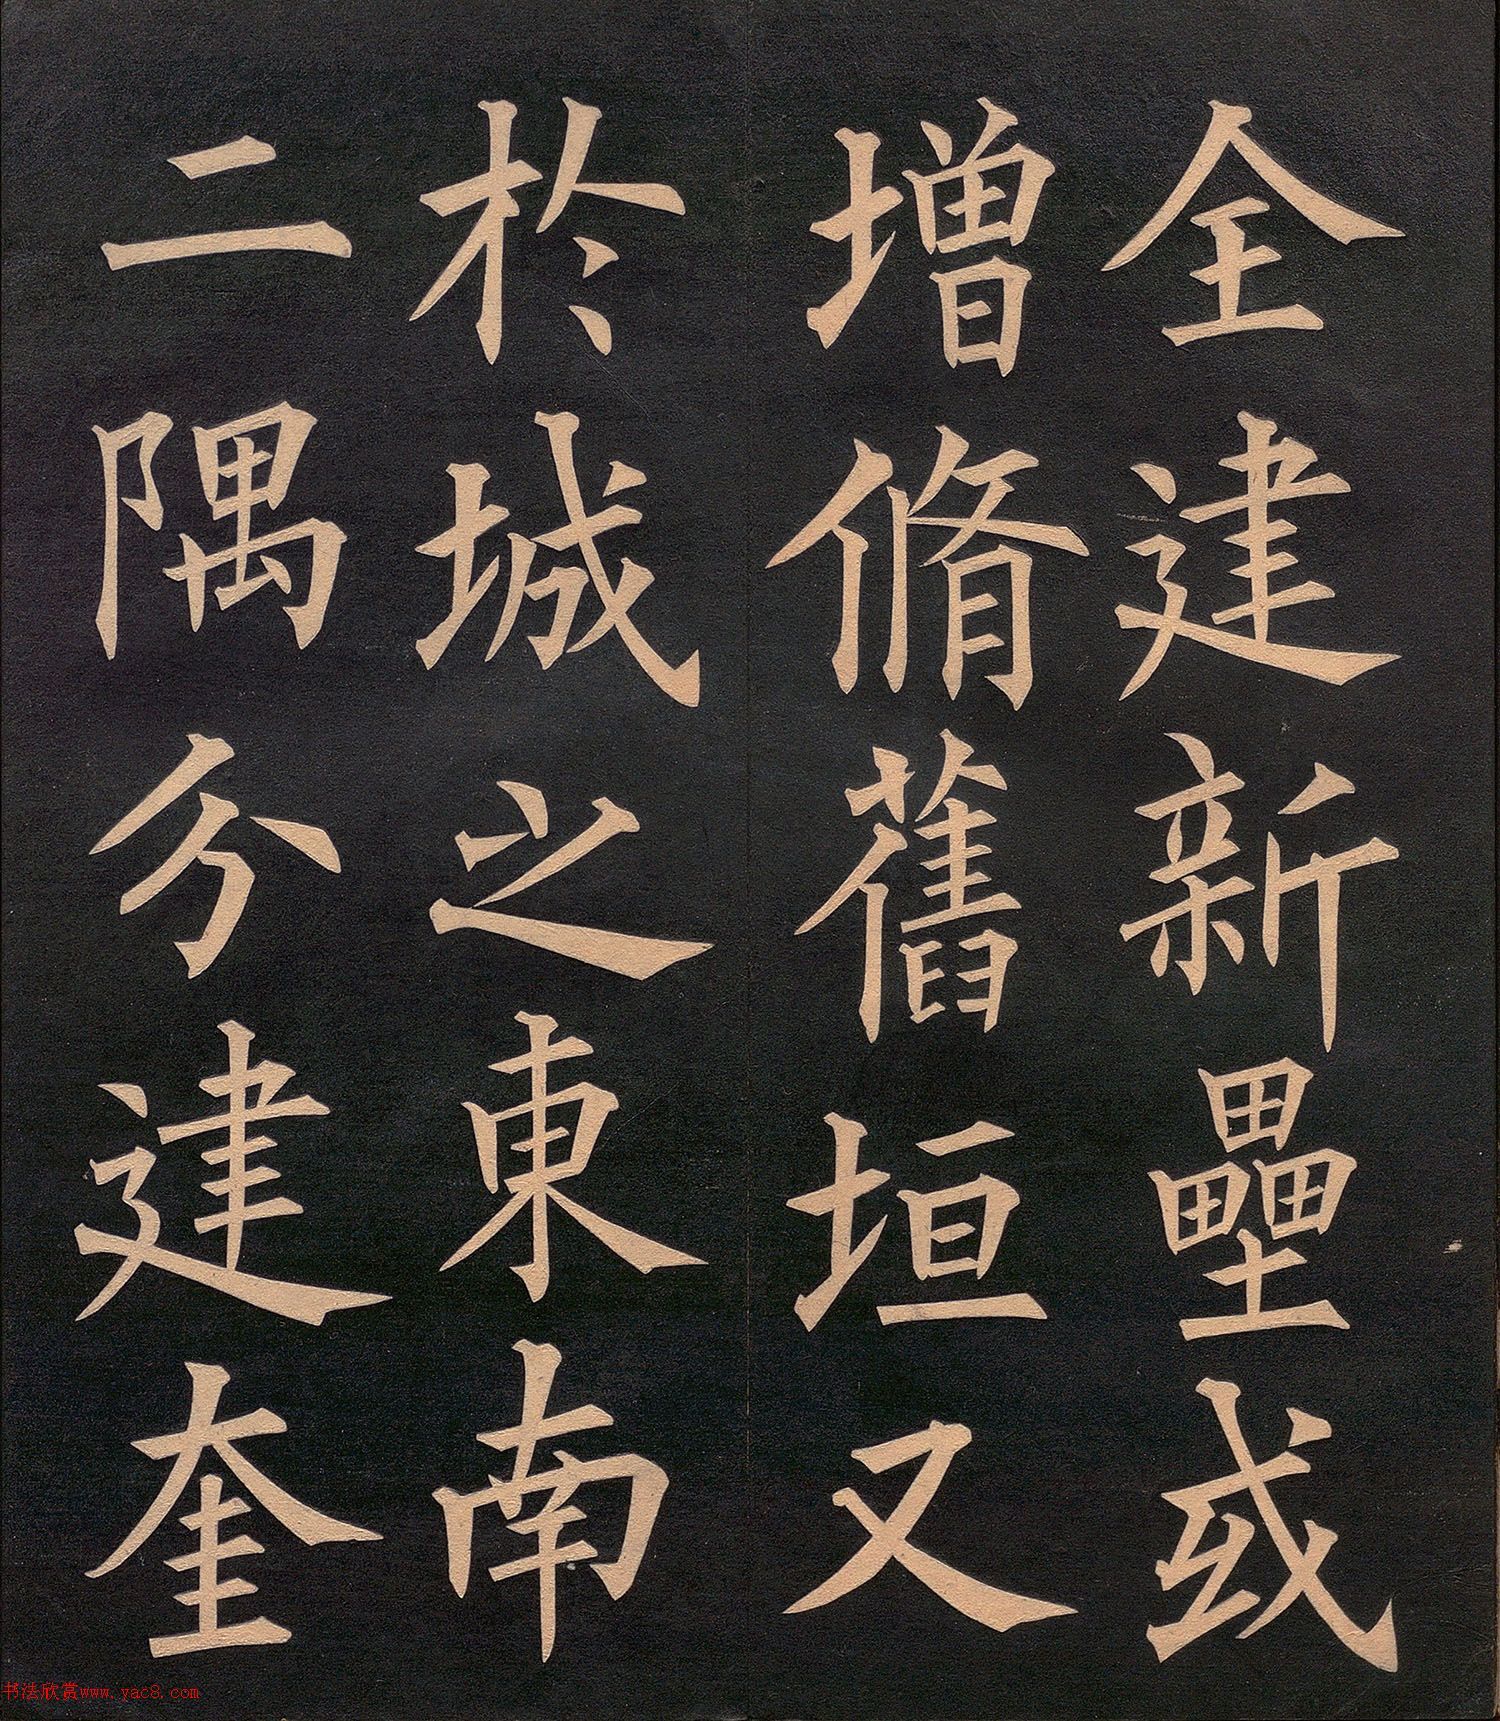 全建新壘或
增脩舊垣又
於城之東南
二隅分建奎
书法欣赏www.yac8.com